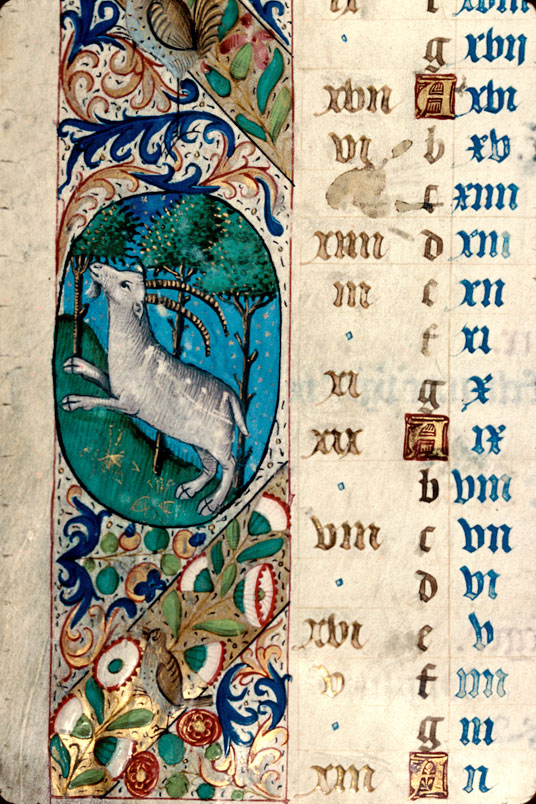 f xviii
g xvii
xvii A xvi
vi b xv
c xiiii
xiiii d xiii
iii e xii
f xi
xi g x
xix A ix
b viii
viii c vii
d vi
xvi e v
v f iiii
g iii
xiii A ii